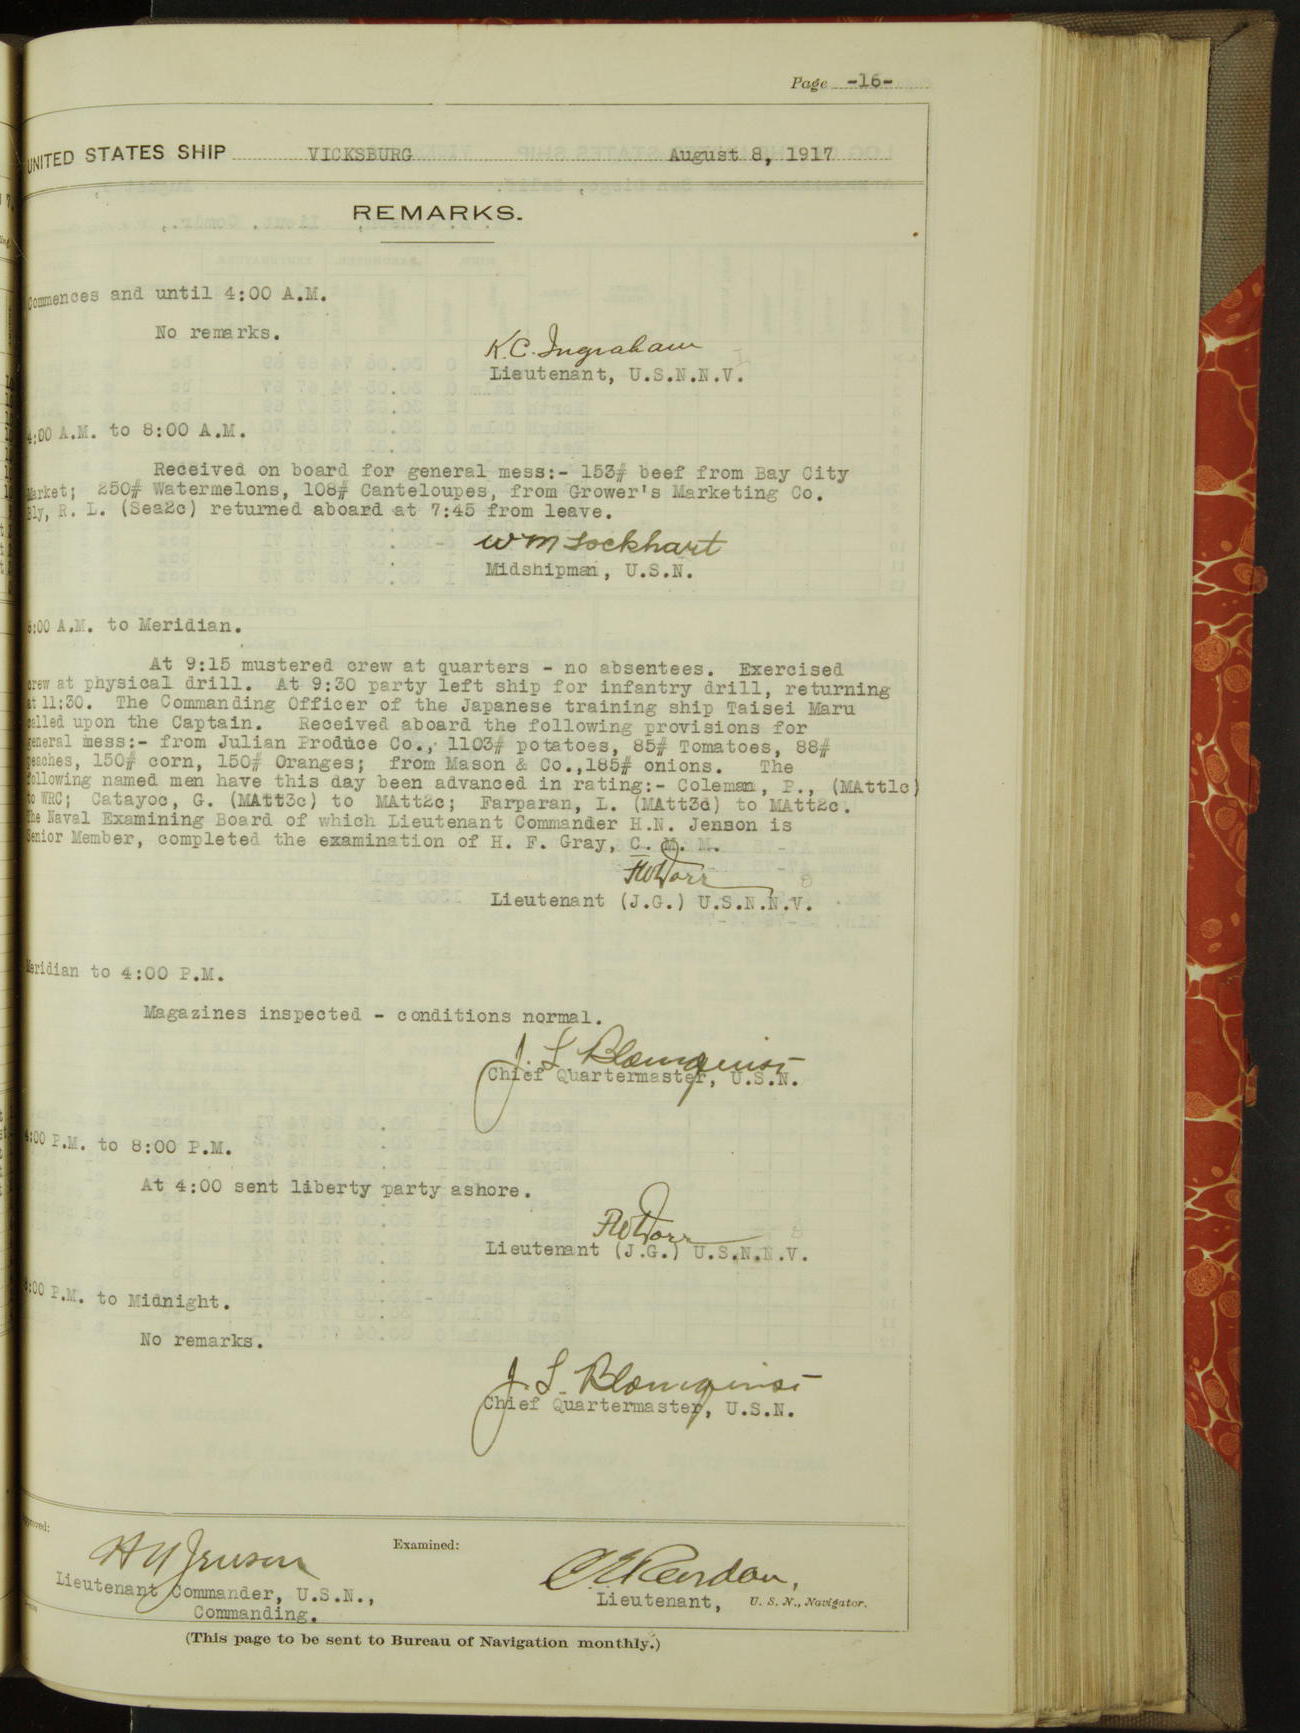 Page -16-
UNITED STATES SHIP VICKSBURG August 8, 1917
REMARKS.
Commences and until 4:00 A.M.
No remarks.
K.C. Ingraham
Lieutenant, U.S.N.N.V.
4:00 A.M. to 8:00 A.M.
Received on board for general mess:- 153# beef from Bay City
Market; 250# Watermelons, 108# Canteloupes, from Grower's Marketing Co.
Ely, R. L. (Sea2c) returned aboard at 7:45 from leave.
Wm Lockhart
Midshipman, U.S.N.
8:00 A.M. to Meridian.
At 9:15 mustered crew at quarters - no absentees. Exercised
crew at physical drill. At 9:30 party left ship for infantry drill, returning
at 11:30. The Commanding Officer of the Japanese training ship Taisei Maru
called upon the Captain. Received aboard the following provisions for
general mess:- from Julian Produce Co., 1103# potatoes, 85# Tomatoes, 88#
peaches, 150# corn, 150# Oranges; from Mason & Co.,185# onions. The
following named men have this day been advanced in rating:- Coleman, P., (MAtt1c)
to WRC; Catayoc, G. (MAtt3c) to MAtt2c; Farparan, L. (MAtt3d) to MAtt2c.
The Naval Examining Board of which Lieutenant Commander H.N. Jenson is
Senior Member, completed the examination of H. F. Gray, C. M. M.
Lieutenant (J.G.) U.S.N.N.V.
Meridian to 4:00 P.M.
Magazines inspected - conditions normal.
J. L. Blomquist
Chief Quartermaster, U.S.N.
4:00 P.M. to 8:00 P.M.
At 4:00 sent liberty party ashore.
Lieutenant (J.G.) U.S.N.N.V.
8:00 P.M. to Midnight.
No remarks.
J. L. Blomquist
Chief Quartermaster, U.S.N.
Approved:
H N Jenson
Examined:
Lieutenant Commander, U.S.N.,
Commanding.
Lieutenant, U. S. N., Navigator.
(This page to be sent to Bureau of Navigation monthly.)